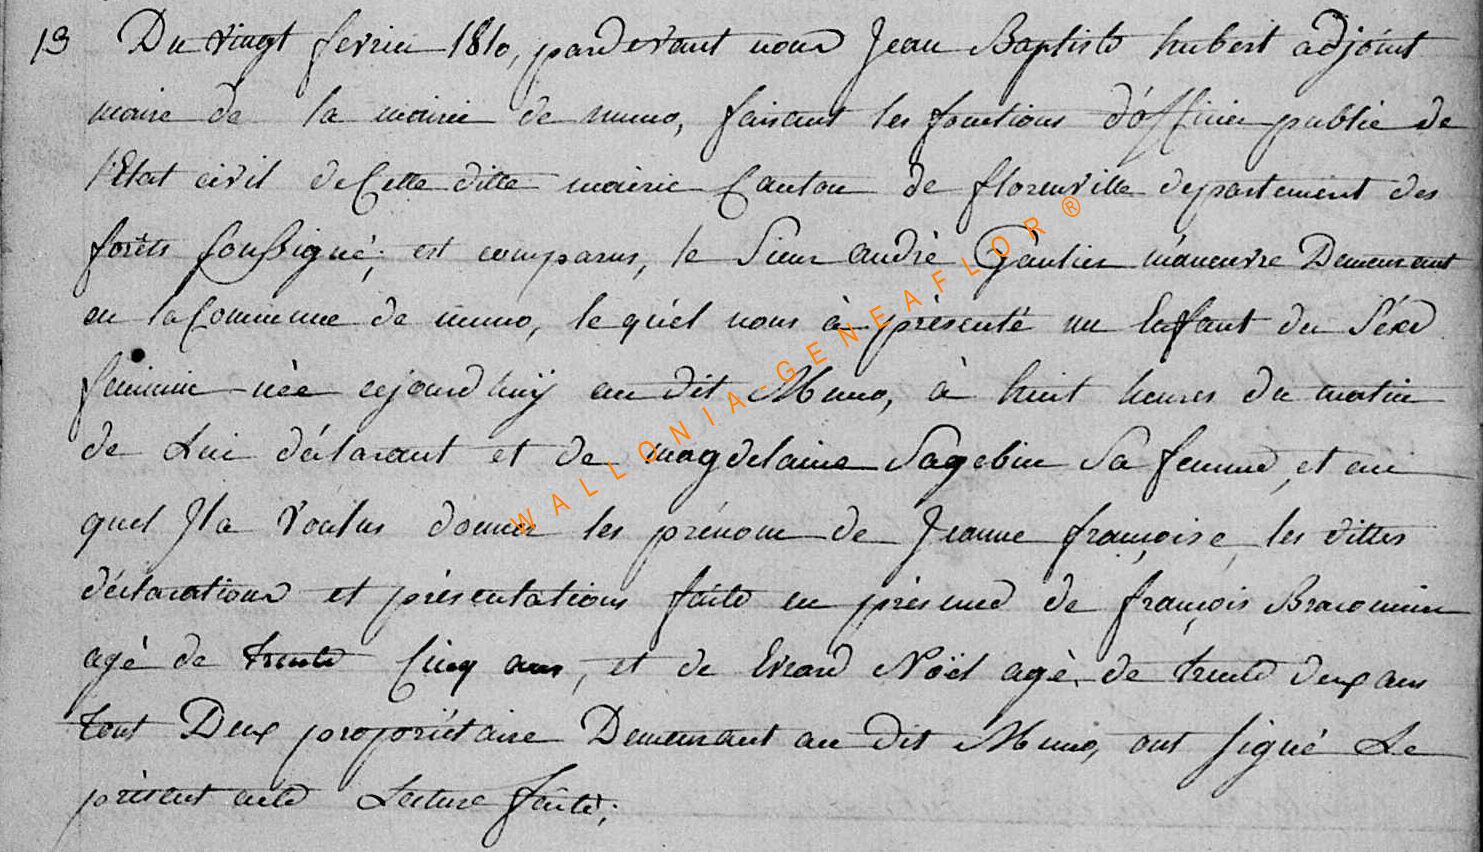 13 Du vingt fevrier 1810, pardevant nous Jean Baptiste hubert adjoint
maire de la mairie de muno, faisant les fonctions d'officier public de
l'Etat civil de Cette ditte mairie Canton de florenville departement des
forêts soussigné; est comparus, le Sieur andrè Gautier manoeuvre Demeurant
en la Commune de muno, le quél nous à présenté un Enfant du Séxe
feminin née cejourd'huÿ au dit Muno, à huit heures du matin
de Lui déclarant et de magdelaine Sagebin Sa femme, et au
quel Jl a voulus donner les prénom de Jeanne françoise, les dittes
déclarations et présentations faite en présence de françois Braconnier
agé de trente Cinq ans, et de Evrard Noël agè de trente deux ans
tout Deux propriétaire Demeurant au dit Muno, ont signé Le
présent acte Lecture faite;
WALLONIA-GENEAFLOR ®